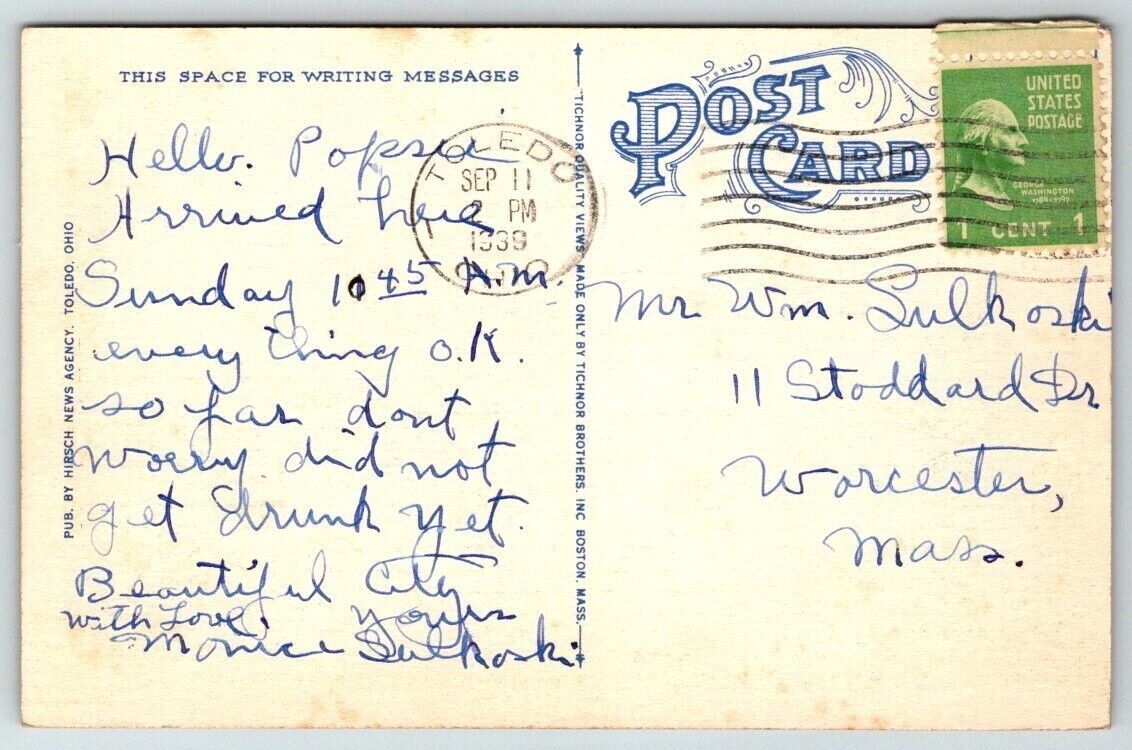 THIS SPACE FOR WRITING MESSAGES
POST
CARD
UNITED
STATES
POSTAGE
GEORGE
WASHINGTON
1789-1797
1 CENT 1
TOLEDO
SEP 11
2 PM
1939
OHIO
Hello. Popsie
Arrived here
Sunday 10 45 A.M.
every thing O.K.
so far dont
worry did not
get drunk yet.
Beautiful City
with Love. yours
Monica Sulkoski
PUB. BY HIRSCH NEWS AGENCY, TOLEDO, OHIO
TICHNOR QUALITY VIEWS MADE ONLY BY TICHNOR BROTHERS. INC BOSTON. MASS.
Mr Wm. Sulkoski
11 Stoddard Dr
Worcester,
Mass.